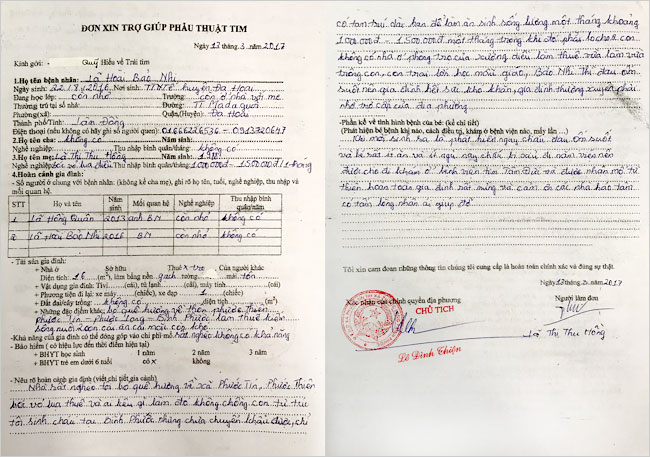 ĐƠN XIN TRỢ GIÚP PHẪU THUẬT TIM
Ngày 13 tháng 3 năm 2017
Kính gửi: Quỹ Hiểu về Trái tim
1.Họ tên bệnh nhân: Lã Hoài Bảo Nhi
Ngày sinh: 22/8/2016 Nơi sinh: TTYTế huyện Đạ Hoai
Đang học lớp: còn nhỏ Trường: còn ở nhà với mẹ
Thường trú tại số nhà: Đường: TT. Mađaguôi
Phường(xã): Quận(huyện): Đạ Hoai
Thành phố/Tỉnh: Lâm Đồng
Điện thoại (nếu không có hãy ghi số người quen): 01866226536 - 0913720647
2.Họ tên cha: không có Năm sinh:
Nghề nghiệp: Thu nhập bình quân/tháng: không có
3.Họ tên mẹ: Lã Thị Thu Hồng Năm sinh: 1981
Nghề nghiệp: Thu nhập bình quân/tháng 1000000đ - 1500.000đ/1 tháng
4.Hoàn cảnh gia đình:
- Số người ở chung với bệnh nhân: (không kể cha mẹ), ghi rõ họ tên, tuổi, nghề nghiệp, thu nhập và mối quan hệ.
STT Họ và tên Năm sinh Mối quan hệ Nghề nghiệp Thu nhập bình quân/năm
1 Lã Hồng Quân 2013 anh BM còn nhỏ không có
2 Lã Hoài Bảo Nhi 2016 BM còn nhỏ không có
- Tài sản gia đình:
+ Nhà ở Sở hữu Thuê x trọ Của người khác
Diện tích: 16 (m²), làm bằng nền gạch tường, mái tôn
+ Vật dụng gia đình: Tivi (cái), tủ lạnh (cái), máy tính (cái)
+ Phương tiện đi lại: xe máy (chiếc), xe đạp 1 (chiếc)
+ Đất đai/cây trồng: không có diện tích (m²)
+ Những đặc điểm khác: bỏ quê hương về thôn phước Thiện
Phước Tín - Phước Long - Bình Phước làm thuê kiếm
sống nuôi 2 con
- Khả năng của gia đình có thể đóng góp vào chi phí mổ: rất nghèo không có khả năng
- Bảo hiểm (có hiệu lực đến thời điểm hiện tại)
+ BHYT học sinh 1 năm 2 năm 3 năm
+ BHYT trẻ em dưới 6 tuổi có x không
- Nêu rõ hoàn cảnh gia đình (viết chi tiết gia cảnh)
Nhà rất nghèo tôi bỏ quê hương về xã Phước Tín, Phước Thiện
vỏ lụa thuê và ai kêu gì làm đó không chồng con từ từ
tôi sinh cháu tại Bình Phước nhưng chưa chuyển khẩu được, chỉ
có tạm trú dài hạn để làm ăn sinh sống lương một tháng khoảng
1000.000đ - 1500.000đ một tháng trong khi đó phải lo cho 2 con
không có nhà ở phòng trọ của xưởng điều làm thuê vừa làm vừa
trông con, con trai lớn học mẫu giáo, Bảo Nhi thì đau ốm
suốt nên gia chính hết sức khó khăn, gia đình thường xuyên phải
nhờ trợ cấp của địa phương.
-Phần kể về tình hình bệnh của bé: (kể chi tiết)
(Phát hiện bé bệnh khi nào, cách điều trị, khám ở bệnh viện nào, mấy lần...)
khi mới sinh ra là phát hiện ngay cháu đau ốm suốt
và bé rất ít ăn và ít ngủ nay
được cho đi khám ở bệnh viện tim Tâm Đức và được nhận mổ từ
thiện hoàn toàn gia đình rất mừng và cảm ơn các nhà hảo tâm
có tấm lòng nhân ái giúp đỡ
Tôi xin cam đoan những thông tin chúng tôi cung cấp là hoàn toàn chính xác và đúng sự thật.
Ngày 13 tháng 3 năm 2017
Xác nhận của chính quyền địa phương
Người làm đơn
CHỦ TỊCH
Lã Thị Thu Hồng
Lê Đình Thiện